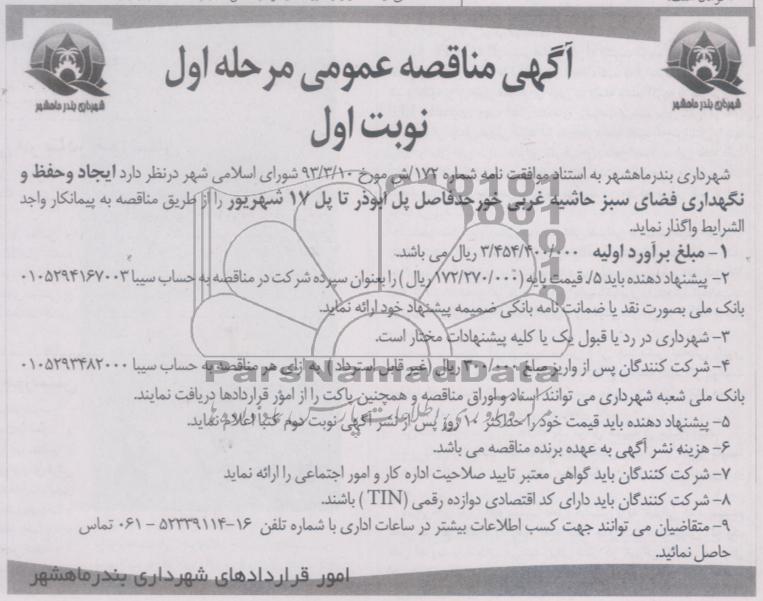 آگهی مناقصه عمومی مرحله اول
نوبت اول
شهرداری بندر ماهشهر
شهرداری بندر ماهشهر
شهرداری بندرماهشهر به استناد موافقت نامه شماره ۱۷۲/ش مورخ ۹۳/۳/۱۰ شورای اسلامی شهر درنظر دارد ایجاد وحفظ و
نگهداری فضای سبز حاشیه غربی خورحدفاصل پل ابوذر تا پل ۱۷ شهریور را از طریق مناقصه به پیمانکار واجد
الشرایط واگذار نماید.
۱- مبلغ برآورد اولیه ۳/۴۵۴/۴۰۰/۰۰۰ ریال می باشد.
۲- پیشنهاد دهنده باید ۵٪ قیمت پایه (۱۷۲/۲۷۰/۰۰۰ ریال) را بعنوان سپرده شرکت در مناقصه به حساب سیبا ۰۱۰۵۲۹۴۱۶۷۰۰۳
بانک ملی بصورت نقد یا ضمانت نامه بانکی ضمیمه پیشنهاد خود ارائه نماید.
۳- شهرداری در رد یا قبول یک یا کلیه پیشنهادات مختار است.
۴- شرکت کنندگان پس از واریز مبلغ ۳۰۰/۰۰۰ ریال (غیر قابل استرداد) به ازای هر مناقصه به حساب سیبا ۰۱۰۵۲۹۳۴۸۲۰۰۰
بانک ملی شعبه شهرداری می توانند اسناد و اوراق مناقصه و همچنین پاکت را از امور قراردادها دریافت نمایند.
۵- پیشنهاد دهنده باید قیمت خود را حداکثر ۱۰ روز پس از نشر آگهی نوبت دوم کتبا اعلام نماید.
۶- هزینه نشر آگهی به عهده برنده مناقصه می باشد.
۷- شرکت کنندگان باید گواهی معتبر تایید صلاحیت اداره کار و امور اجتماعی را ارائه نماید
۸- شرکت کنندگان باید دارای کد اقتصادی دوازده رقمی (TIN) باشند.
۹- متقاضیان می توانند جهت کسب اطلاعات بیشتر در ساعات اداری با شماره تلفن ۱۶-۵۲۳۳۹۱۱۴ - ۰۶۱ تماس
حاصل نمائید.
امور قراردادهای شهرداری بندرماهشهر
ParsNamadData